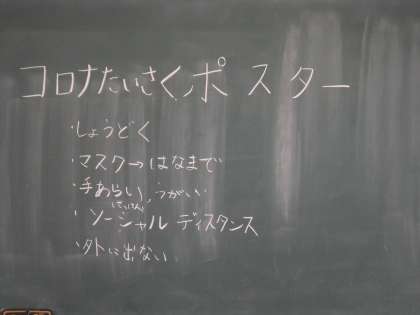 コロナたいさくポスター
・しょうどく
・マスク→はなまで
・手あらい、うがい
・ソーシャルディスタンス
・外に出ない